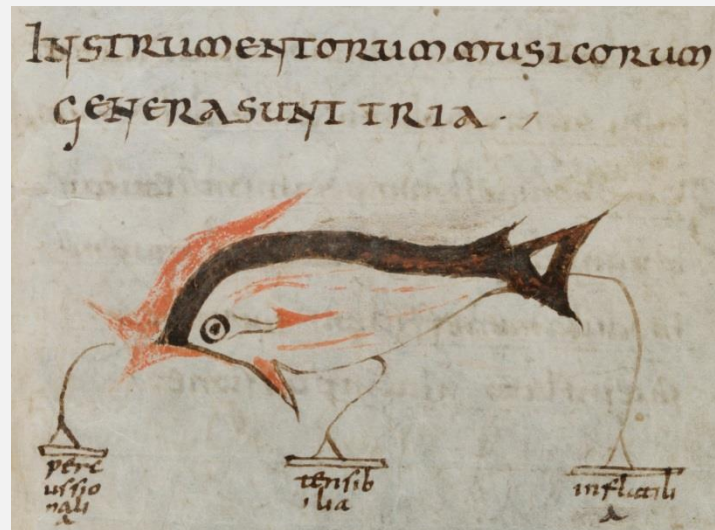 INSTRUMENTORUM MUSICORUM
GENERA SUNT TRIA.
perc
ussio
nali
a
tensib
ilia
inflatili
a